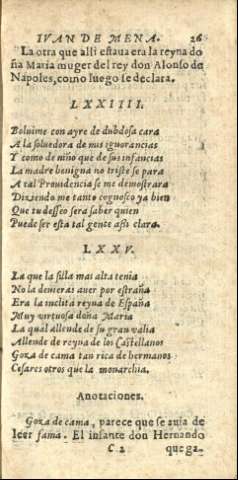 IVAN DE MENA. 26
La otra que alli estaua era la reyna do
ña Maria muger del rey don Alonso de
Napoles, como luego se declara.
LXXIIII.
Boluime con ayre de dubdosa cara
A la soluedora de mis ignorancias
Y como de niño que de sus infancias
La madre benigna no triste se para
A tal Prouidencia se me demostrara
Diziendo me tanto cognosco ya bien
Que tu desseo sera saber quien
Puede ser esta tal gente assi clara.
LXXV.
La que la silla mas alta tenia
No la deuieras auer por estraña
Era la inclita reyna de España
Muy virtuosa doña Maria
La qual allende de su gran valia
Allende de reyna de los Castellanos
Goza de cama tan rica de hermanos
Cesares otros que la monarchia.
Anotaciones.
Goza de cama, parece que se auia de
leer fama. El infante don Hernando
C 2 que ga-